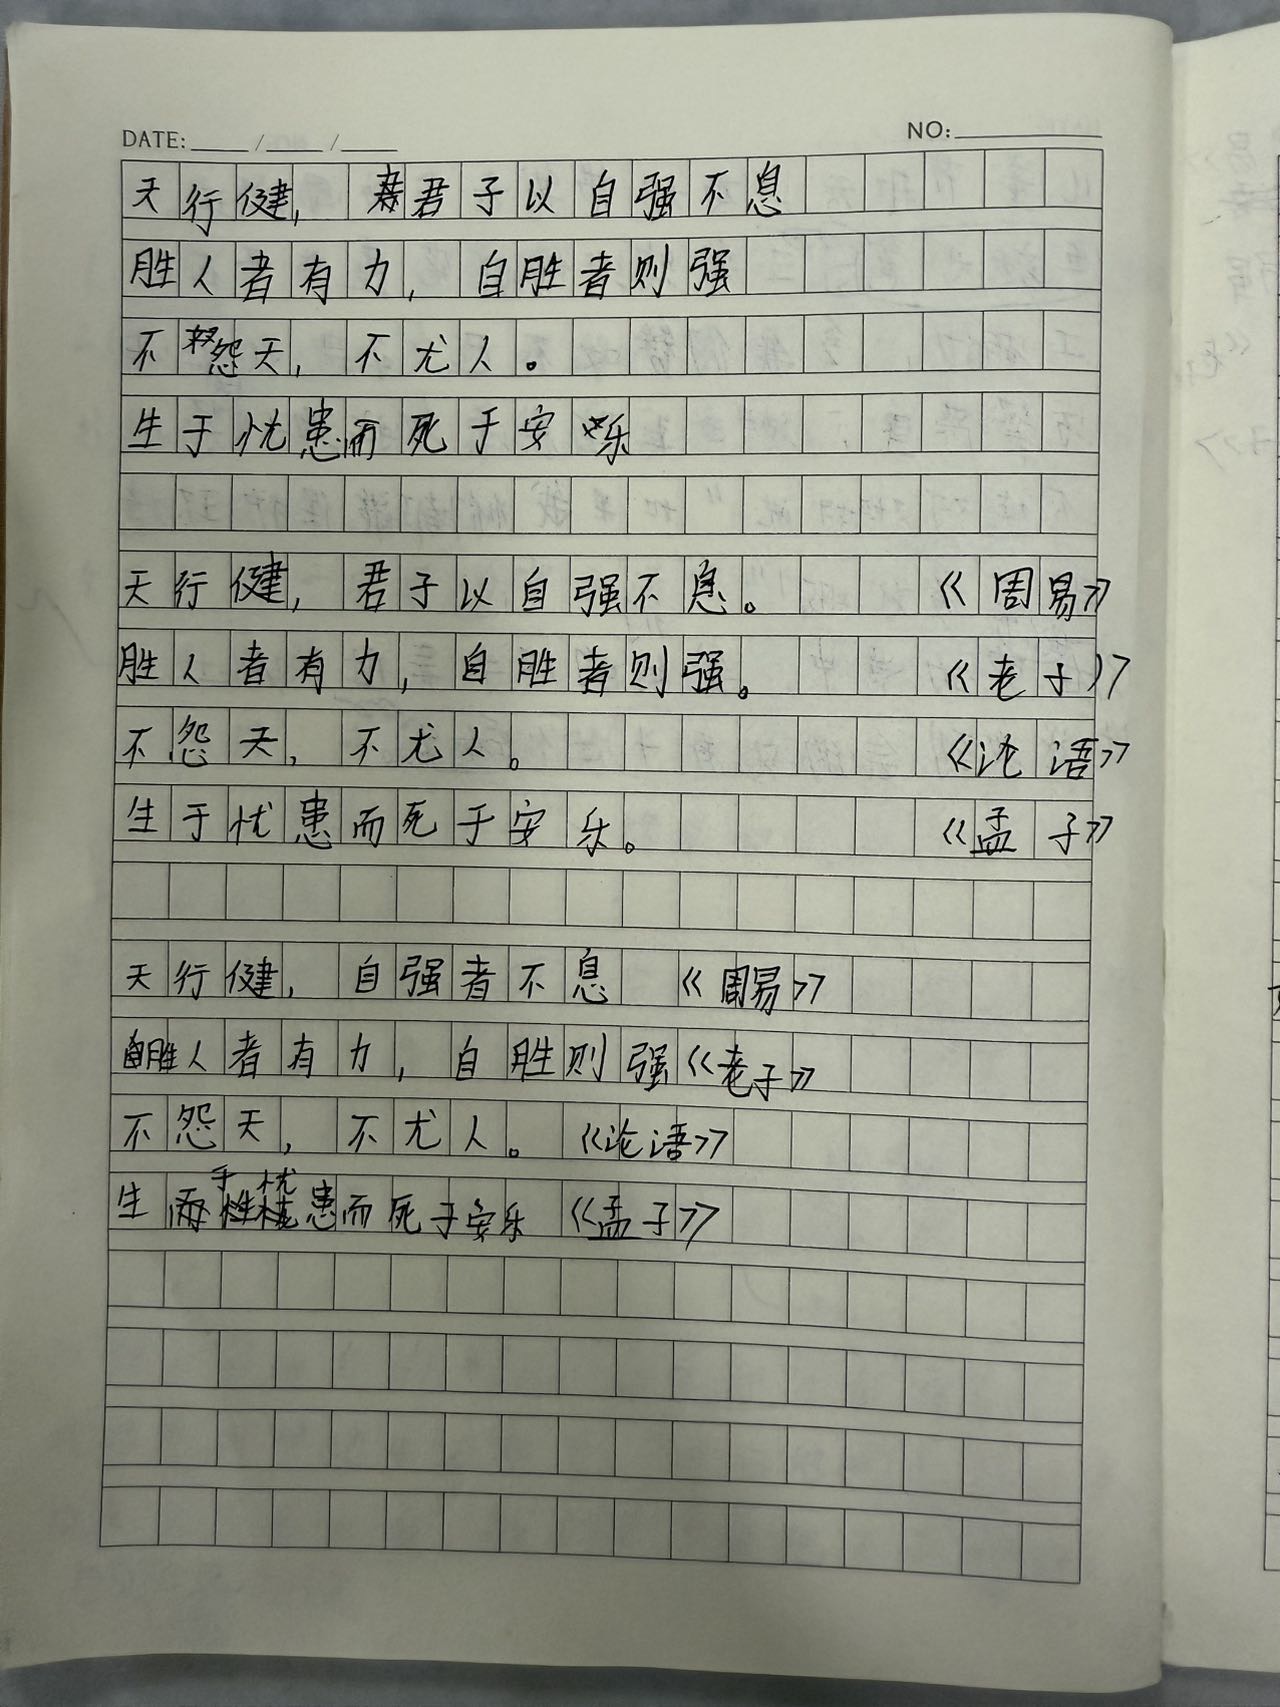 DATE: ____ / ____ / ____ NO: ____
天行健, 君子以自强不息
胜人者有力, 自胜者则强
不怨天, 不尤人。
生于忧患而死于安乐
天行健, 君子以自强不息。 《周易》
胜人者有力, 自胜者则强。 《老子》
不怨天, 不尤人。 《论语》
生于忧患而死于安乐。 《孟子》
天行健, 自强者不息 《周易》
胜人者有力, 自胜则强《老子》
不怨天, 不尤人。 《论语》
生于忧患而死于安乐 《孟子》